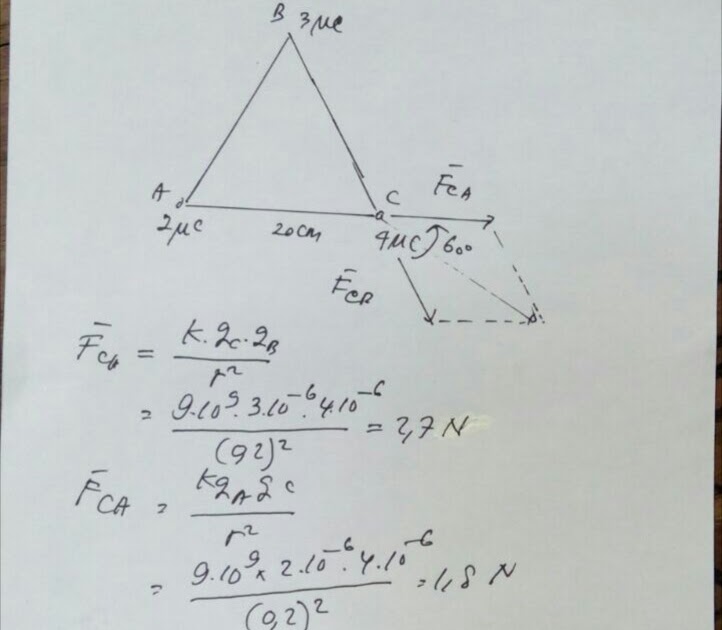 B 3μC
A
C
F̄CA
2μC
20cm
4μC
60°
F̄CB
F̄CB = K.qC.qB / r²
= 9.10⁹.3.10⁻⁶.4.10⁻⁶ / (0,2)² = 2,7 N
F̄CA = KqAqC / r²
= 9.10⁹ x 2.10⁻⁶.4.10⁻⁶ / (0,2)² = 1,8 N